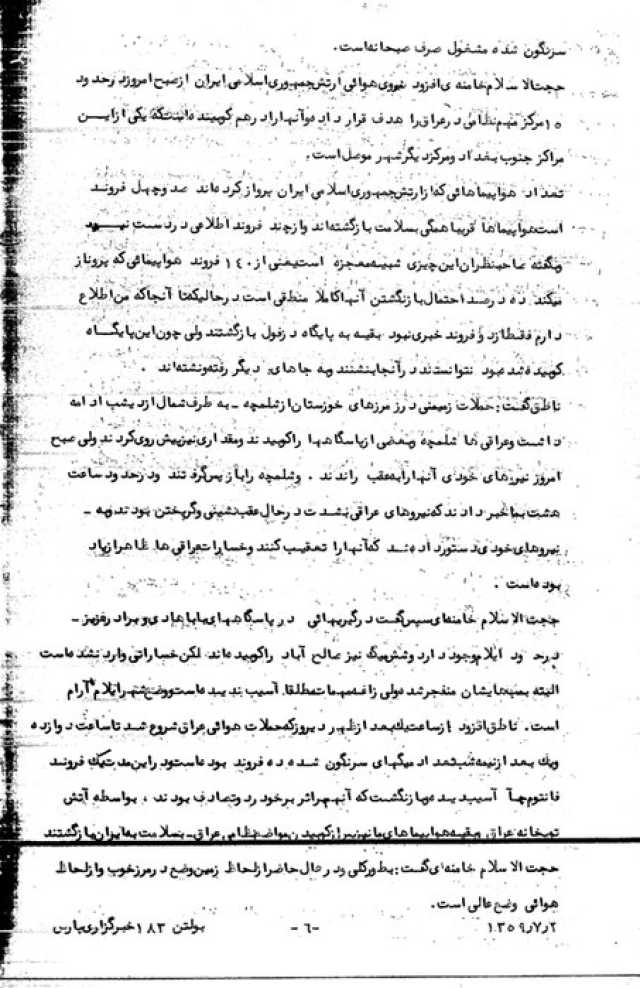 سرنگون شده مشغول صرف صبحانه‌است.
حجت‌الا سلام خامنه ی‌افزود نیروی هوائی ارتش جمهوری اسلامی ایران ازصبح امروزدرحد ود
۱۵مرکز مهم نظامی در عراق را هدف قرار داده وآنها راد رهم کوبیده‌است‌که یکی ازایــن
مراکز جنوب بغداد ومرکزدیگر شهر موصل است.
تعداد هواپیماهائی که ازارتش جمهوری اسلامی ایران پرواز کرده‌اند صد وچهل فرونــد
است‌هواپیماها قریبا همگی بسلامت بازگشته‌اند وازچند فروند اطلاعی د ردست نبــود
وبگفته صاحبنظران این چیزی شبیه معجزه است‌یعنی از ۱٤۰ فروند هواپیمائی که پرواز
میکند ده درصد احتمال بازنگشتن آنها کاملا منطقی است د رحالیکه تا آنجا که من اطلاع
دارم فقط از دو فروند خبری نبود بقیه به پایگاه دزفول بازگشتند ولی چون این پایگــاه
کوبیده شده بود نتوانستند د رآنجا بنشنند وبه جاهای دیگر رفته ونشته‌اند .
ناطق گفت: حملات زمینی د رز مرزهای خوزستان از شلمچه ـ به طرف شمال از دیشب ادامه
داشت وعراقی ها شلمچه وبعضی از پاسگاهها را کوبید ند ومقداری نیز پیش روی کردند ولی صبح
امروز نیروهای خودی آنها را به عقب راندند . وشلمچه را باز پس گرفتند ود رحدود ساعت
هشت بما خبر دادند که نیروهای عراقی بشدت د رحال عقب نشینی وگریختن بودند وبه ـ
نیروهای خودی دستور داده شد که آنها را تعقیب کنند وخسارات عراقی ها ظاهرا زیاد
بوده است .
حجت الا سلام خامنه‌ای سپس گفت د رگیریهائی د ر پاسگاههای باباهادی و برادر عزیز ـ
د رحد ود ایلام وجود دارد وشش میگ نیز صالح آباد را کوبیده‌اند لکن خساراتی وارد نشده است
البته بمبهایشان منفجر شد ولی زاغه مهمات مطلقا آسیب ندیده است ووضع شهر ایلام آرام
است. ناطق افزود از ساعت یک بعد از ظهر دیروز که حملات هوائی عراق شروع شد تا ساعت دوازده
ویک بعد از نیمه شب تعداد میگهای سرنگون شده ده فروند بوده است ود راین مدت یک فرونــد
فانتوم ما آسیب دیده وبازنگشت که آنهم براثر برخورد وتصادف بوده ، بواسطه آتش
توپخانه عراق وبقیه هواپیماهای ما نیز پس از کوبیدن مواضع نظامی عراق ـ بسلامت به ایران بازگشتند
حجت الا سلام خامنه‌ای گفت: بطورکلی ود رحال حاضر از لحاظ زمین وضع د رمرز خوب واز لحاظ
هوائی وضع عالی است.
۱۳۵۹ر۷ر۲ -٦- بولتن ۱۸۳ خبرگزاری پارس